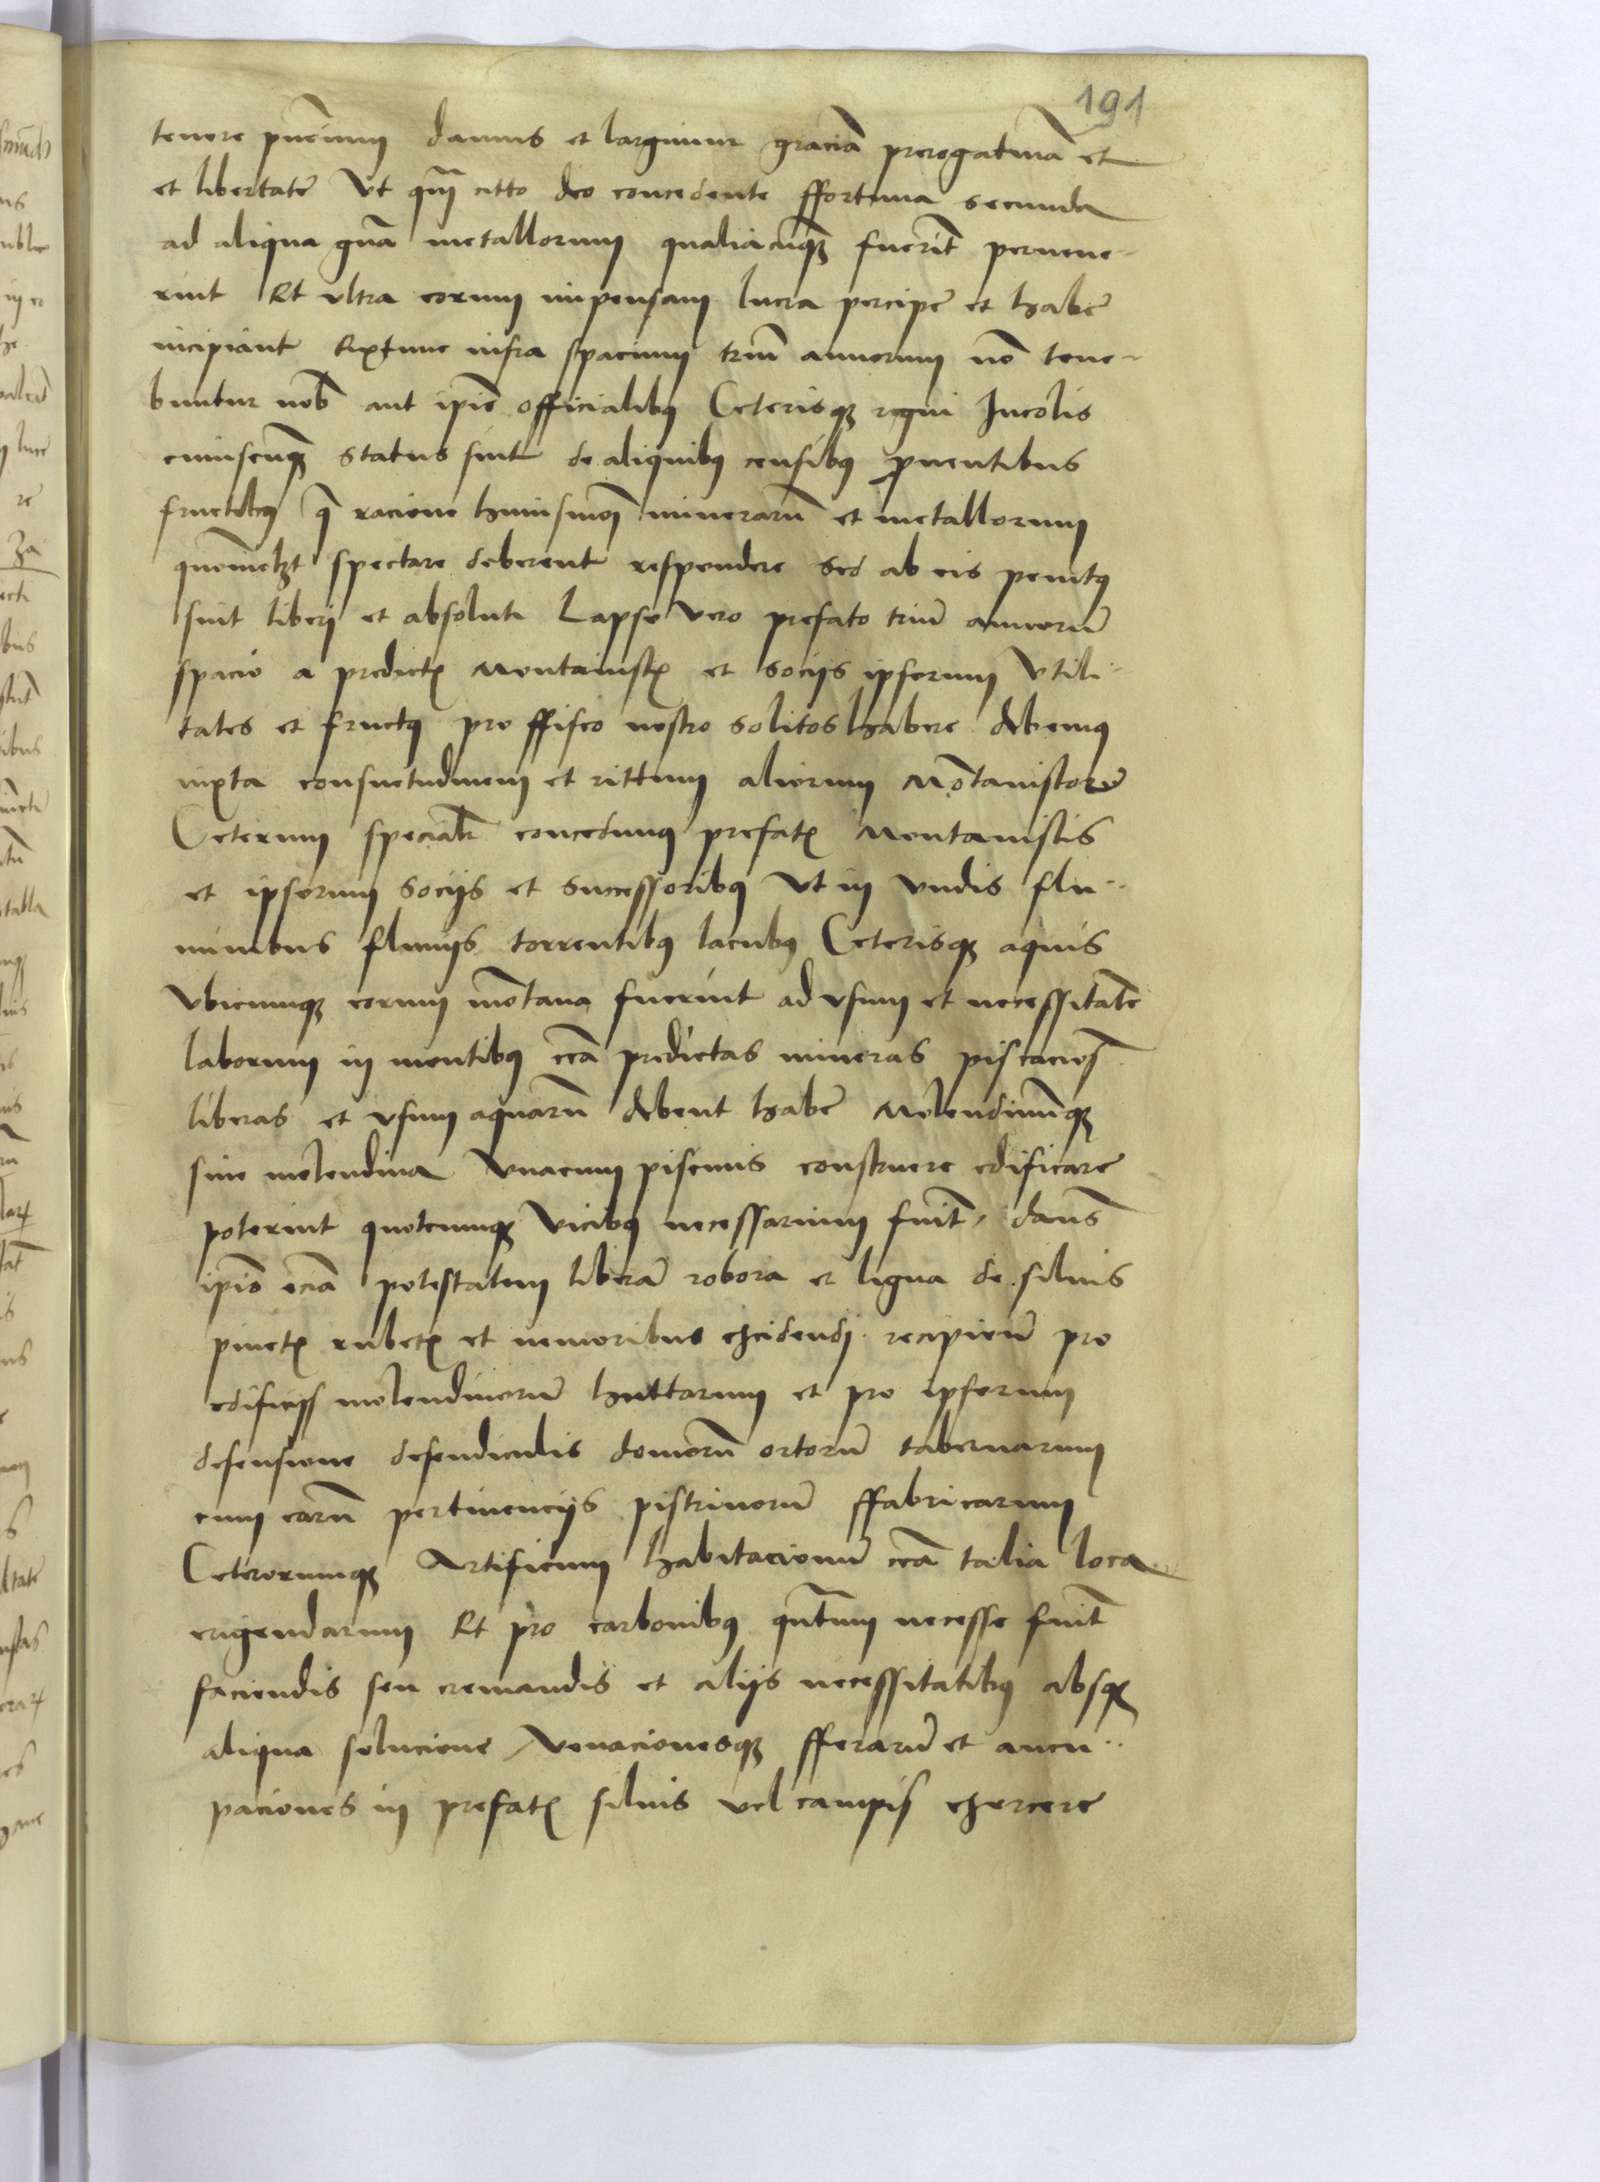 191
tenore pñcium damus et largimur graciã prerogatiuã et
et libertatẽ Vt qm̃ citto deo concedente ffortuna secunda
ad aliqua gñã metallorum qualiacũqꝫ fuerit̃ peruene-
rint Et vltra eorum impensam lucra percipẽ et habẽ
incipiant Extunc infra spacium triũ annorum nõ tene-
buntur nob̃ aut ip̃is officialibꝰ Ceterisqꝫ regni Incolis
cuiuscũqꝫ status sint de aliquibus censibꝰ ꝓuentibus
fructibꝰ q̃ racione huiusmõi minerarũ et metallorum
quom̃ol3t spectare deberent respondere Sed ab eis penitꝰ
sint liberj et absoluti Lapso vero prefato triũ annorũ
spacio a predictꝭ Montanistꝭ et Socijs ipsorum Vtili-
tates et fructꝰ pro ffisco nostro solitos habere debemꝰ
iuxta consuetudinem et rittum aliorum Mõtanistorũ
Ceterum specialr̃ concedimꝰ prefatꝭ Montanistis
et ipsorum Socijs et Successoribꝰ Vt in Vndis flu-
minibus fluuijs torrentibꝰ lacubꝰ Ceterisqꝫ aquis
Vbicumqꝫ eorum mõtana fuerint ad vsum et necessitatẽ
laborum in montibꝰ cc̃a predictas mineras piscacioẽs
liberas et vsum aquarũ debent habẽ Molendinũqꝫ
siue molendina Vnacum piscinis construere edificare
poterint quotcumqꝫ Vicibꝰ necessarium fuit̃, dañs
ip̃is ec̃ia potestatem liberã robora et ligna de siluis
pinetꝭ rubetꝭ et nemoribus excidendj recipiendi pro
edificijs molendinorũ huttarum et pro ipsorum
defensione defendiculis domorũ ortorũ tabernarum
cum earũ pertinencijs pistrinorũ ffabricarum
Ceterorumqꝫ Artificum habitacionũ cc̃a talia loca
erigendarum Et pro carbonibꝰ qñtum necesse fuit̃
faciendis seu cremandis et alijs necessitatibꝰ absqꝫ
aliqua solucione Venacionesqꝫ fferarũ et aucu-
paciones in prefatꝭ siluis vel campis exercere